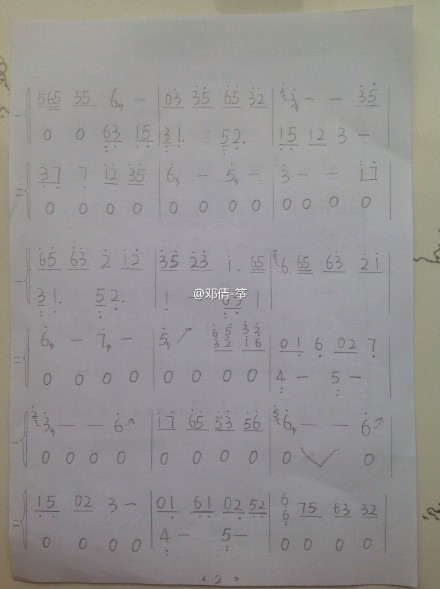 565 35 6 - | 03 35 65 32 | 3 - - 35
0 0 63 15 | 31. 52. | 15 12 3 -
37 7 12 35 | 6 - 5 - | 3 - - 17
0 0 0 0 | 0 0 0 | 0 0 0 0
65 63 2 12 | 35 23 1. 65 | 6. 65 63 21
31. 52. | 1 - 03 1
@邓倩-筝
6 - 7 - | 5 65 32 32 16 | 01 6 02 7
0 0 0 0 | 0 0 0 0 | 4 - 5 -
3 - - 6 | 17 65 53 56 | 6 - - 6
0 0 0 0 | 0 0 0 0 | 0 0
15 02 3 - | 01 61 02 52 | 6 6 75 63 32
0 0 0 0 | 4 - 5 - | 0 0 0 0
<2>